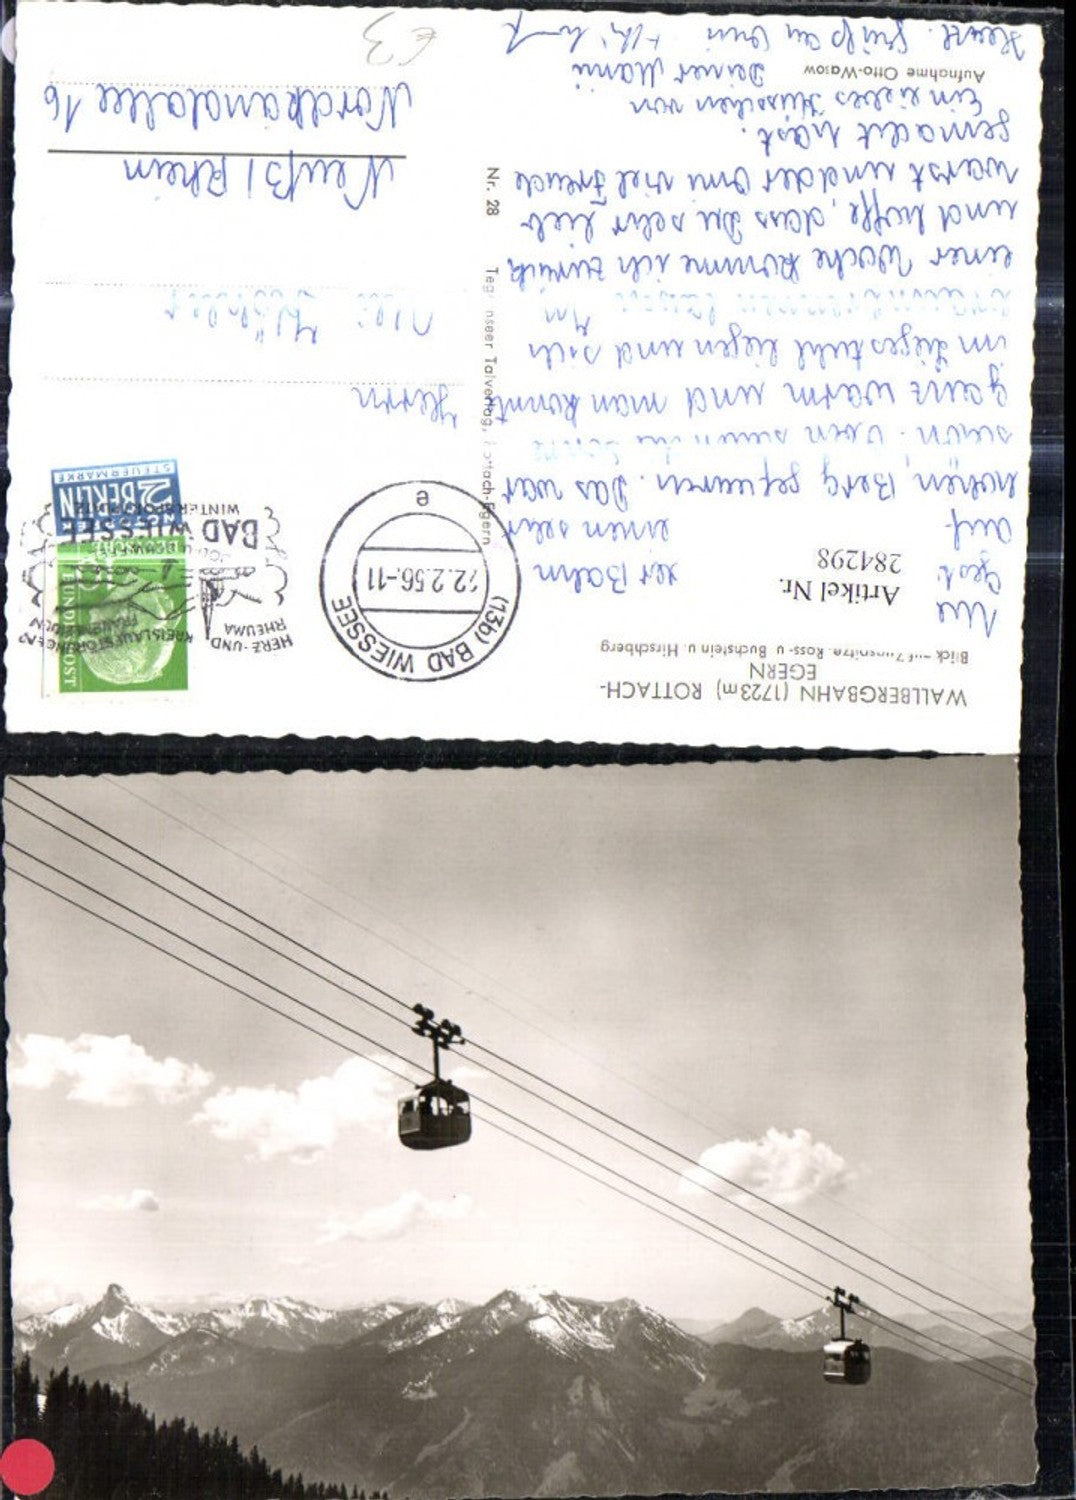 WALLBERGBAHN (1723m) ROTTACH-
EGERN
Blick auf Zugspitze, Ross- u. Buchstein u. Hirschberg
Artikel Nr.
284298
auf einen sehr
hohen Berg gefahren. Das war
schön. Oben
ganz warm und man konnte
im Liegestuhl liegen und sich
In
einer Woche komme ich zurück
und hoffe, dass Du sehr lieb
warst und der Omi viel Freude
gemacht hast.
Ein liebes Küsschen von
Deiner Mami
Aufnahme Otto-Wasow
Nr. 28 Tegernseer Talverlag, Rottach-Egern
(13b) BAD WIESSEE
22.2.56.-11
e
HERZ- UND KREISLAUFSTÖRUNGEN
RHEUMA FRAUENLEIDEN
BAD WIESSEE
WINTERSPORTPLATZ
DEUTSCHE
BUNDESPOST
NOTOPFER
2 BERLIN
STEUERMARKE
Herrn
Neuß / Rhein
Nordkanalallee 16
€3